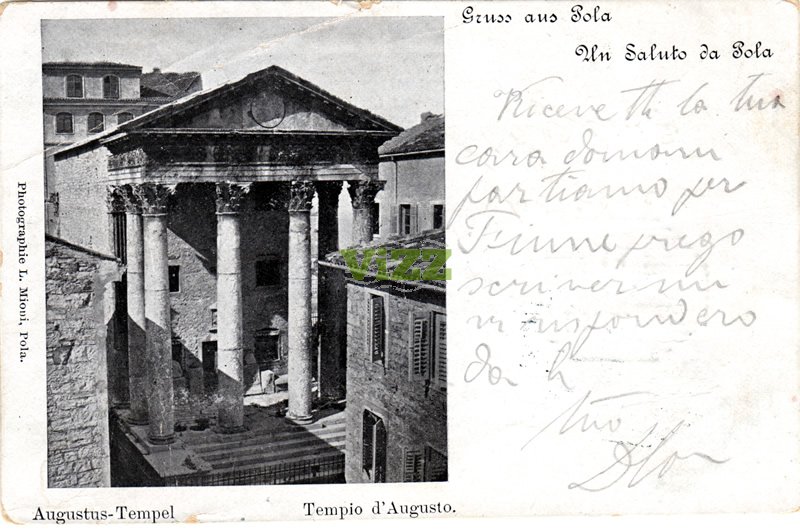 Gruss aus Pola
Un Saluto da Pola
Ricevetti la tua
cara domani
partiamo per
Fiume prego
scrivermi
vi rispondero
da li
tuo
Photographie L. Mioni, Pola.
Vizz
Augustus-Tempel
Tempio d'Augusto.